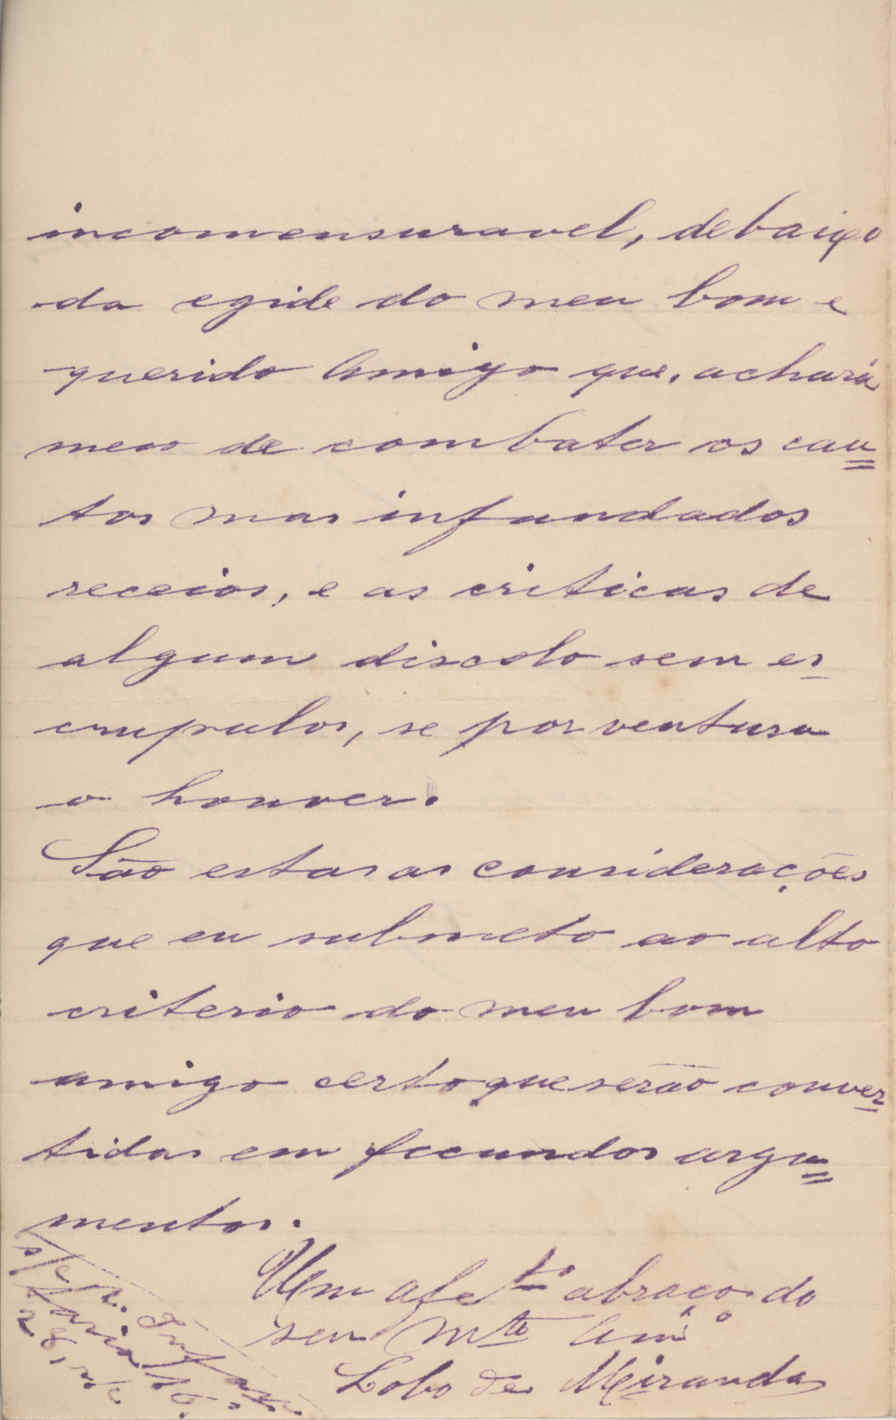 incomensuravel, debaixo
da egide do meu bom e
querido Amigo que, achará
meio de combater os cau=
tos mas infundados
receios, e as criticas de
algum discolo sem es-
crupulos, se porventura
o houver.
São estas as considerações
que eu submeto ao alto
criterio do meu bom
amigo certo que serão conver-
tidas em fecundos argu=
mentos.
Um afe.to abraço do
seu Mto Amo
Lobo de Miranda